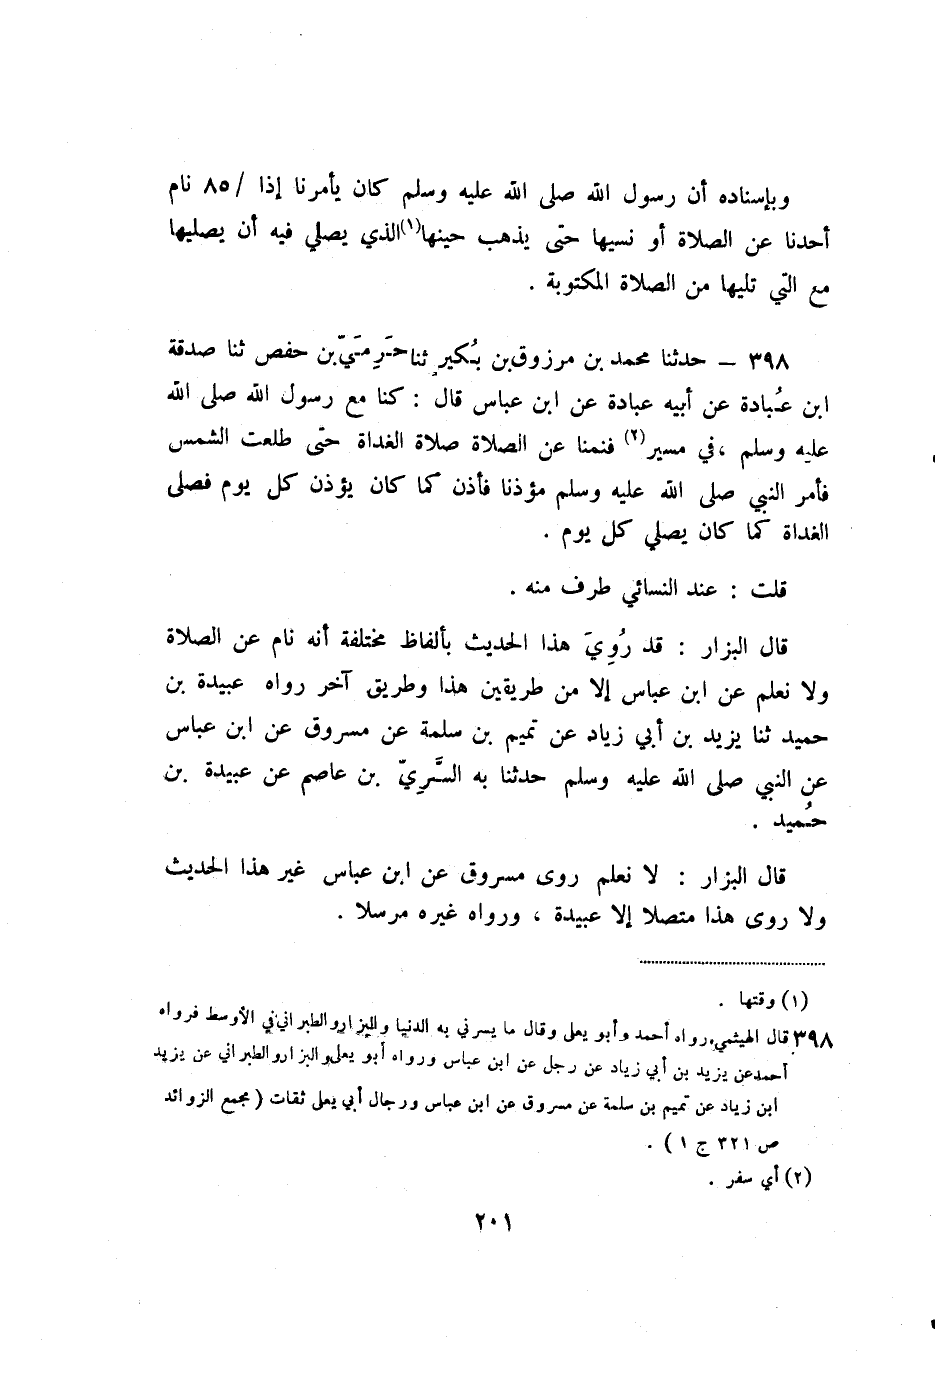 وبإسناده أن رسول الله صلى الله عليه وسلم كان يأمرنا إذا / ٨٥ نام
أحدنا عن الصلاة أو نسيها حتى يذهب حينها(١)الذي يصلي فيه أن يصليها
مع التي تليها من الصلاة المكتوبة .
٣٩٨ – حدثنا محمد بن مرزوق بن بُكير ثنا حَرَمِيّ بن حفص ثنا صدقة
ابن عُبادة عن أبيه عبادة عن ابن عباس قال : كنا مع رسول الله صلى الله
عليه وسلم ،في مسير(٢) فنمنا عن الصلاة صلاة الغداة حتى طلعت الشمس
فأمر النبي صلى الله عليه وسلم مؤذنا فأذن كما كان يؤذن كل يوم فصلى
الغداة كما كان يصلي كل يوم .
قلت : عند النسائي طرف منه .
قال البزار : قد رُوِيَ هذا الحديث بألفاظ مختلفة أنه نام عن الصلاة
ولا نعلم عن ابن عباس إلا من طريقين هذا وطريق آخر رواه عبيدة بن
حميد ثنا يزيد بن أبي زياد عن تميم بن سلمة عن مسروق عن ابن عباس
عن النبي صلى الله عليه وسلم حدثنا به السَّرِيّ بن عاصم عن عبيدة بن
حُميد .
قال البزار : لا نعلم روى مسروق عن ابن عباس غير هذا الحديث
ولا روى هذا متصلا إلا عبيدة ، ورواه غيره مرسلا .
(١) وقتها .
٣٩٨ قال الهيثمي رواه أحمد وأبو يعلى وقال ما يسرني به الدنيا والبزار والطبراني في الأوسط فرواه
أحمد عن يزيد بن أبي زياد عن رجل عن ابن عباس ورواه أبو يعلى والبزار والطبراني عن يزيد
ابن زياد عن تميم بن سلمة عن مسروق عن ابن عباس ورجال أبي يعلى ثقات ( مجمع الزوائد
ص ٣٢١ ج ١ ) .
(٢) أي سفر .
٢٠١